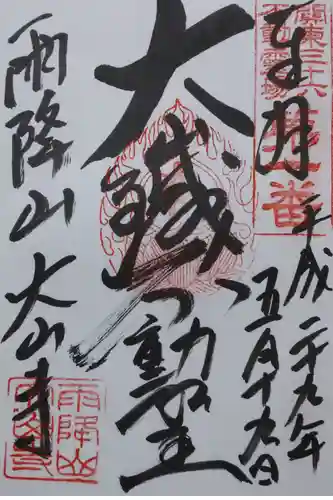 奉拝
平成二十九年
五月十九日
関東三十六
不動霊場
第一番
大鐵不動堂
雨降山大山寺
雨降山